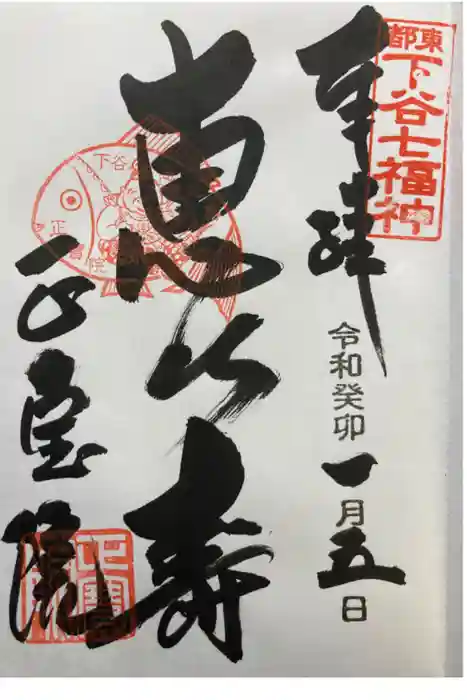 東都
下谷七福神
奉拝
令和癸卯一月五日
恵比寿
下谷
正寳院
正宝院
正寳院